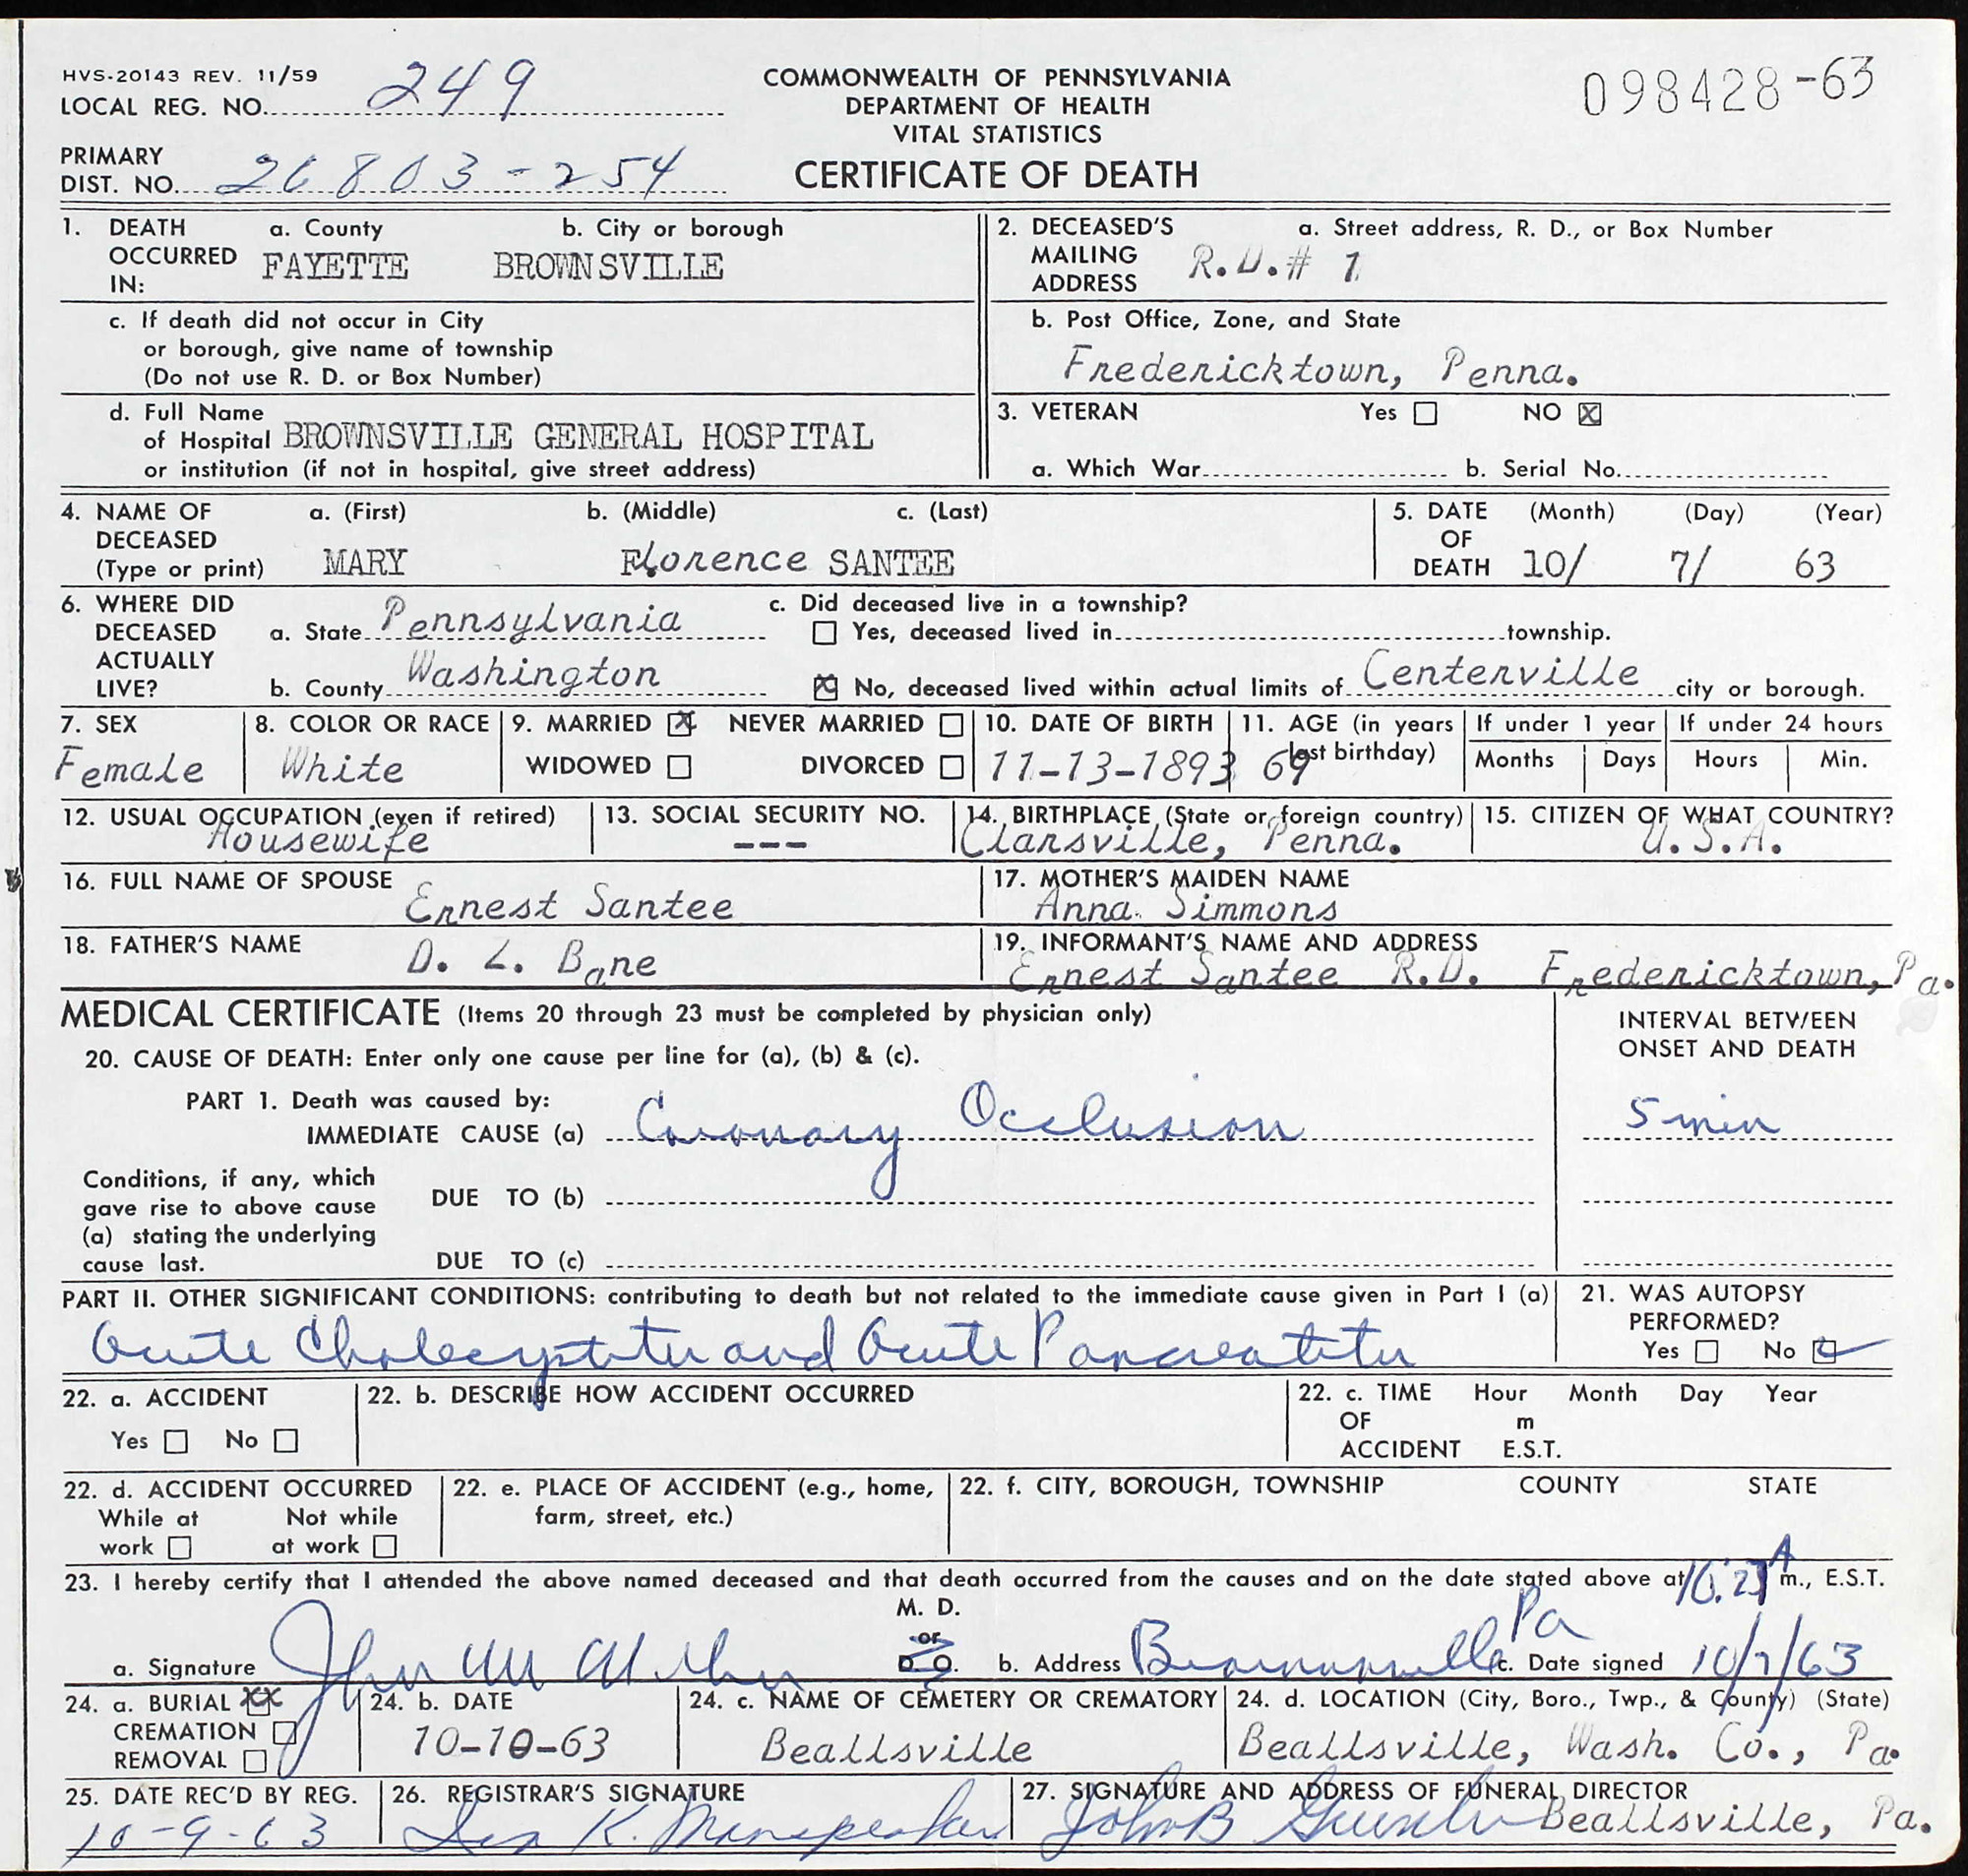 HVS-20143 REV. 11/59
LOCAL REG. NO. 249
COMMONWEALTH OF PENNSYLVANIA
DEPARTMENT OF HEALTH
VITAL STATISTICS
CERTIFICATE OF DEATH
098428-63
PRIMARY
DIST. NO. 26803-254
1. DEATH OCCURRED IN: a. County b. City or borough
FAYETTE BROWNSVILLE
c. If death did not occur in City
or borough, give name of township
(Do not use R. D. or Box Number)
d. Full Name
of Hospital BROWNSVILLE GENERAL HOSPITAL
or institution (if not in hospital, give street address)
2. DECEASED'S MAILING ADDRESS a. Street address, R. D., or Box Number
R.D.# 1
b. Post Office, Zone, and State
Fredericktown, Penna.
3. VETERAN Yes NO X
a. Which War b. Serial No.
4. NAME OF DECEASED (Type or print) a. (First) b. (Middle) c. (Last)
MARY Florence SANTEE
5. DATE OF DEATH (Month) (Day) (Year)
10/ 7/ 63
6. WHERE DID DECEASED ACTUALLY LIVE?
a. State Pennsylvania
b. County Washington
c. Did deceased live in a township?
Yes, deceased lived in township.
X No, deceased lived within actual limits of Centerville city or borough.
7. SEX
Female
8. COLOR OR RACE
White
9. MARRIED X NEVER MARRIED
WIDOWED DIVORCED
10. DATE OF BIRTH
11-13-1893
11. AGE (in years last birthday)
69
If under 1 year
Months Days
If under 24 hours
Hours Min.
12. USUAL OCCUPATION (even if retired)
Housewife
13. SOCIAL SECURITY NO.
---
14. BIRTHPLACE (State or foreign country)
Clarsville, Penna.
15. CITIZEN OF WHAT COUNTRY?
U.S.A.
16. FULL NAME OF SPOUSE
Ernest Santee
17. MOTHER'S MAIDEN NAME
Anna Simmons
18. FATHER'S NAME
D. L. Bane
19. INFORMANT'S NAME AND ADDRESS
Ernest Santee R.D. Fredericktown, Pa.
MEDICAL CERTIFICATE (Items 20 through 23 must be completed by physician only)
INTERVAL BETWEEN
ONSET AND DEATH
20. CAUSE OF DEATH: Enter only one cause per line for (a), (b) & (c).
PART 1. Death was caused by:
IMMEDIATE CAUSE (a) Coronary Occlusion 5 min
Conditions, if any, which
gave rise to above cause
(a) stating the underlying
cause last.
DUE TO (b)
DUE TO (c)
PART II. OTHER SIGNIFICANT CONDITIONS: contributing to death but not related to the immediate cause given in Part I (a)
Acute Cholecystitis and Acute Pancreatitis
21. WAS AUTOPSY
PERFORMED?
Yes No
22. a. ACCIDENT
Yes No
22. b. DESCRIBE HOW ACCIDENT OCCURRED
22. c. TIME OF ACCIDENT Hour Month Day Year
m
E.S.T.
22. d. ACCIDENT OCCURRED
While at work Not while at work
22. e. PLACE OF ACCIDENT (e.g., home,
farm, street, etc.)
22. f. CITY, BOROUGH, TOWNSHIP COUNTY STATE
23. I hereby certify that I attended the above named deceased and that death occurred from the causes and on the date stated above at A m., E.S.T.
M. D.
or
D. O.
a. Signature John
b. Address Brownsville Pa
c. Date signed 10/7/63
24. a. BURIAL XX
CREMATION
REMOVAL
24. b. DATE
10-10-63
24. c. NAME OF CEMETERY OR CREMATORY
Beallsville
24. d. LOCATION (City, Boro., Twp., & County) (State)
Beallsville, Wash. Co., Pa.
25. DATE REC'D BY REG.
10-9-63
26. REGISTRAR'S SIGNATURE
K.
27. SIGNATURE AND ADDRESS OF FUNERAL DIRECTOR
John B Beallsville, Pa.